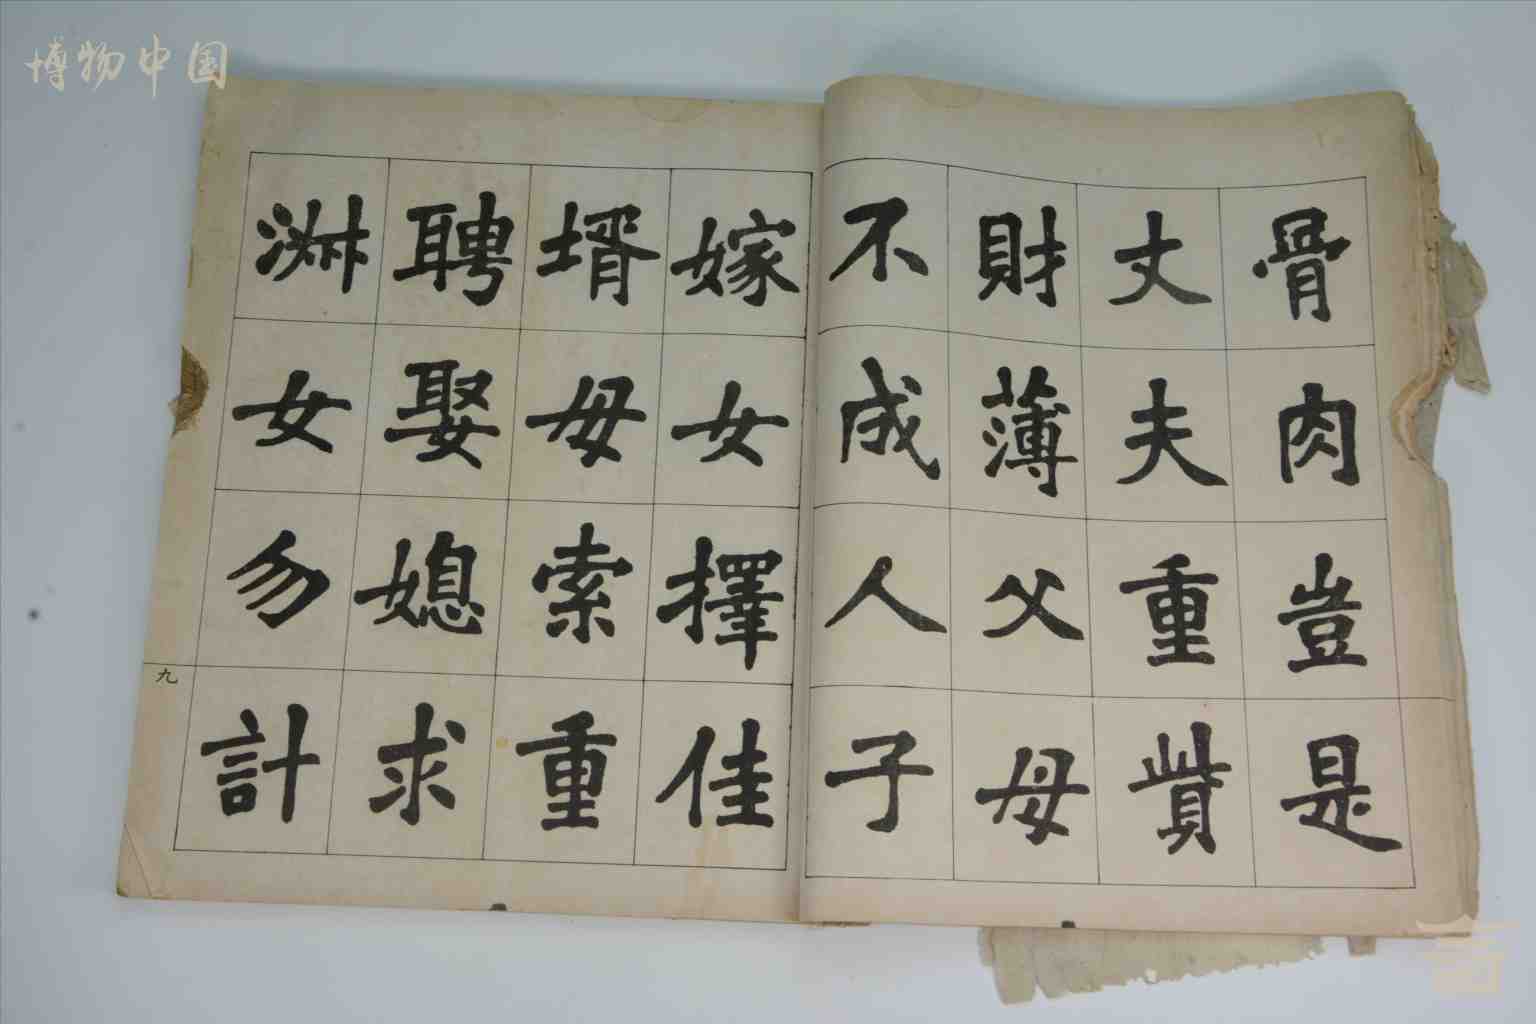 博物中国
骨肉豈是
丈夫重貲
財薄父母
不成人子
嫁女擇佳
壻毋索重
聘娶媳求
淑女勿計
九